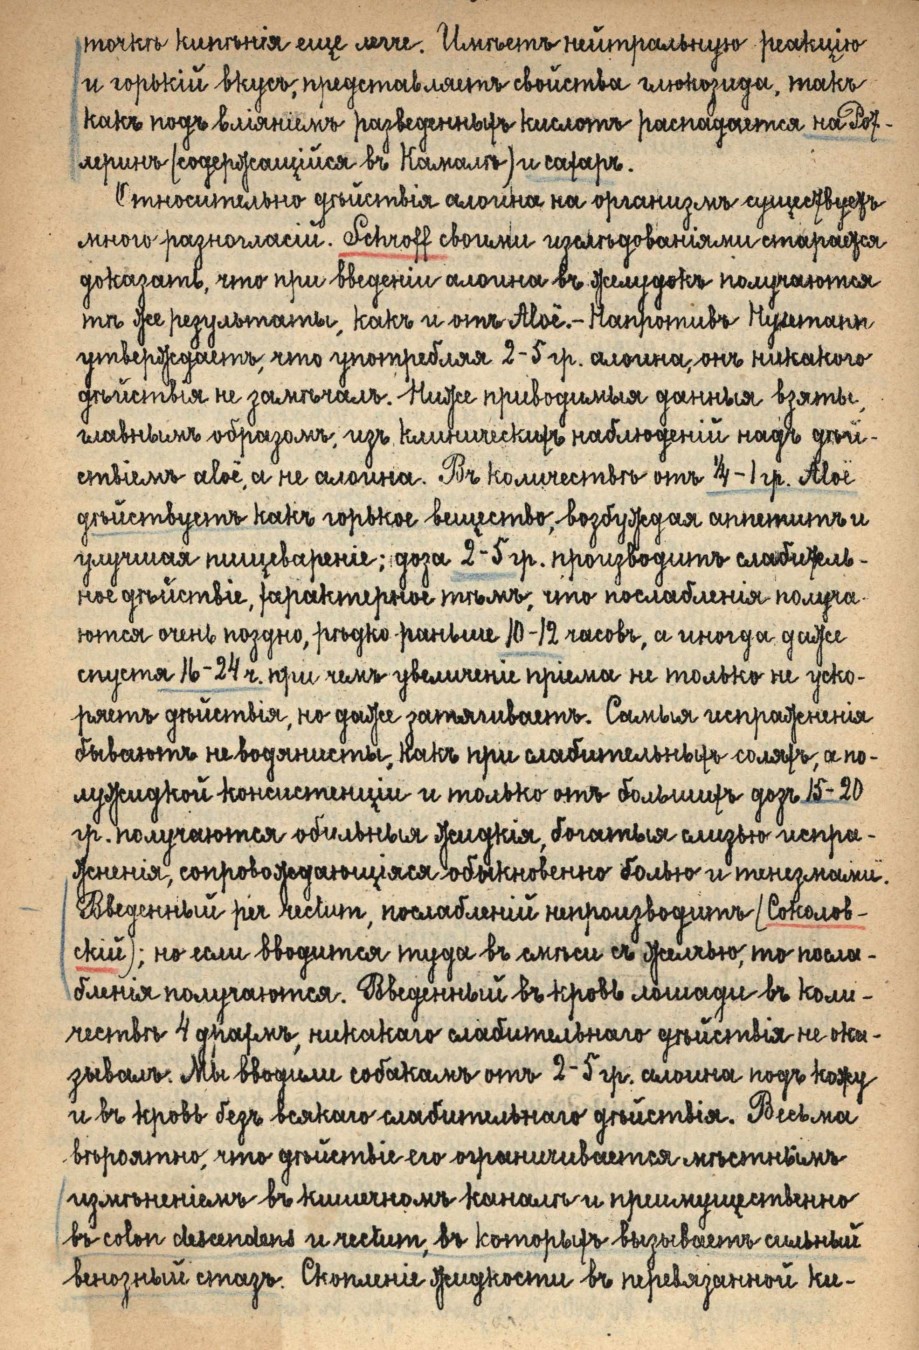 точкѣ кипѣнія еще легче. Имѣетъ нейтральную реакцію
и горькій вкусъ, представляетъ свойства глюкозида, такъ
какъ подъ вліяніемъ разведенныхъ кислотъ распадается на Рот-
леринъ (содержащійся въ Камалѣ) и сахаръ.
Относительно дѣйствія алоина на организмъ существуетъ
много разногласій. Schroff своими изслѣдованіями старается
доказать, что при введеніи алоина въ желудокъ получаются
тѣ же результаты, какъ и отъ Aloë. – Напротивъ
утверждаетъ, что употребляя 2-5 гр. алоина, онъ никакого
дѣйствія не замѣчалъ. Ниже приводимыя данныя взяты,
главнымъ образомъ, изъ клиническихъ наблюденій надъ дѣй-
ствіемъ aloë, а не алоина. Въ количествѣ отъ ¼-1 гр. Aloë
дѣйствуетъ какъ горькое вещество, возбуждая аппетитъ и
улучшая пищевареніе; доза 2-5 гр. производитъ слабитель-
ное дѣйствіе, характерное тѣмъ, что послабленія получа-
ются очень поздно, рѣдко раньше 10-12 часовъ, а иногда даже
спустя 16-24 ч. при чемъ увеличеніе пріема не только не уско-
ряетъ дѣйствія, но даже затягиваетъ. Самыя испражненія
бываютъ не водянисты, какъ при слабительныхъ соляхъ, а по-
лужидкой консистенціи и только отъ большихъ дозъ 15-20
гр. получаются обильныя жидкія, богатыя слизью испра-
жненія, сопровождающіяся обыкновенно болью и тенезмами.
Введенный per rectum, послабленій непроизводитъ (Соколов-
скій); но если вводится туда въ смѣси съ желчью, то посла-
бленія получаются. Введенный въ кровь лошади въ коли-
чествѣ 4 драхмъ, никакаго слабительнаго дѣйствія не ока-
зывалъ. Мы вводили собакамъ отъ 2-5 гр. алоина подъ кожу
и въ кровь безъ всякаго слабительнаго дѣйствія. Весьма
вѣроятно, что дѣйствіе его ограничивается мѣстнымъ
измѣненіемъ въ кишечномъ каналѣ и преимущественно
въ colon descendens и rectum, въ которыхъ вызываетъ сильный
венозный стазъ. Скопленіе жидкости въ перевязанной ки-